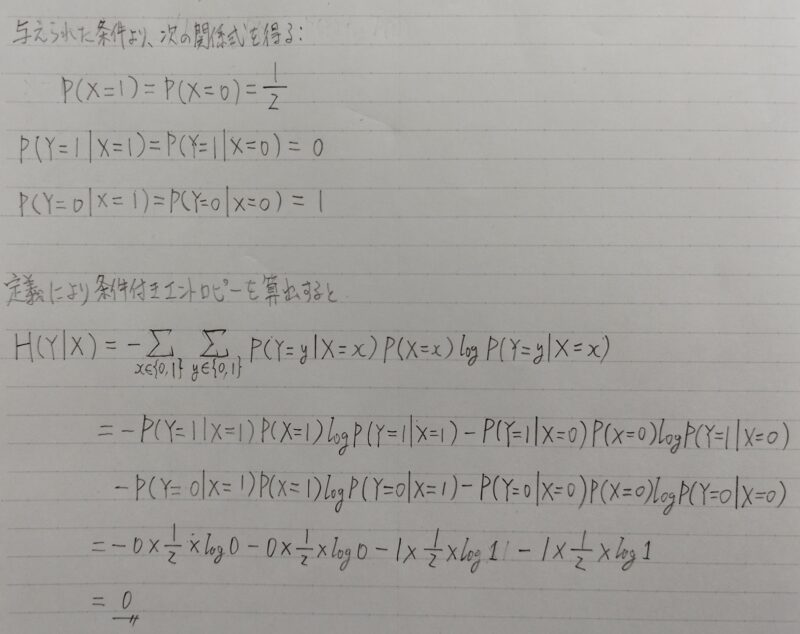 与えられた条件より、次の関係式を得る:
P(X=1)=P(X=0)=1/2
P(Y=1|X=1)=P(Y=1|X=0)=0
P(Y=0|X=1)=P(Y=0|X=0)=1
定義により条件付きエントロピーを算出すると
H(Y|X)=-∑_{x∈{0,1}} ∑_{y∈{0,1}} P(Y=y|X=x)P(X=x)log P(Y=y|X=x)
=-P(Y=1|X=1)P(X=1)logP(Y=1|X=1)-P(Y=1|X=0)P(X=0)logP(Y=1|X=0)
-P(Y=0|X=1)P(X=1)logP(Y=0|X=1)-P(Y=0|X=0)P(X=0)logP(Y=0|X=0)
=-0×1/2×log0-0×1/2×log0-1×1/2×log1-1×1/2×log1
=0